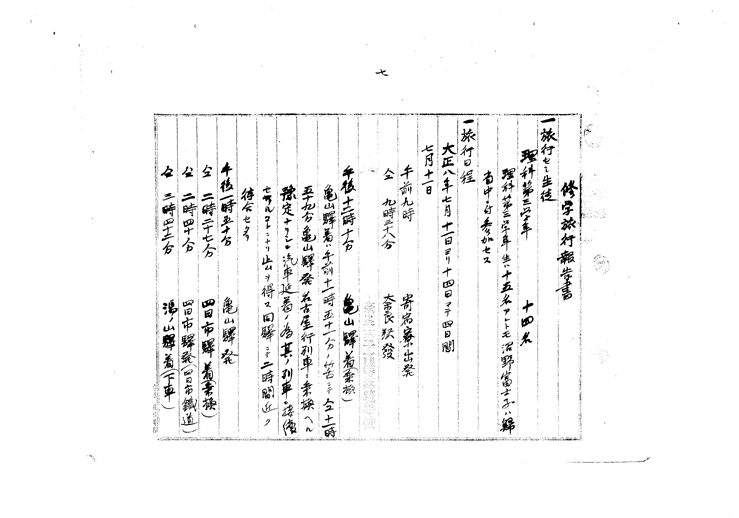 七
修学旅行報告書
一旅行セシ生徒
理科第三学年 十四名
理科第三学年生ハ十五名アレトモ沼野富士子ハ歸
省中ニ付参加セス
一旅行日程
大正八年七月十一日ヨリ十四日マテ四日間
七月十一日
午前九時 寄宿寮出発
仝 九時三十八分 奈良駅發
午後十二時十分 亀山驛着(乗換)
亀山驛着ハ午前十一時五十一分ノ筈ニテ仝十一時
五十九分亀山驛発名古屋行列車ニ乗換ヘル
豫定ナリシモ汽車延着ノ為其ノ列車ニ接續
セサルコトニナリ止ムヲ得ス同驛ニテ二時間近ク
待合セタリ
午後一時五十分 亀山驛発
仝 二時二十七分 四日市驛着(乗換)
仝 二時四十分 四日市驛発(四日市鐵道)
仝 三時四十二分 湯ノ山驛着(下車)